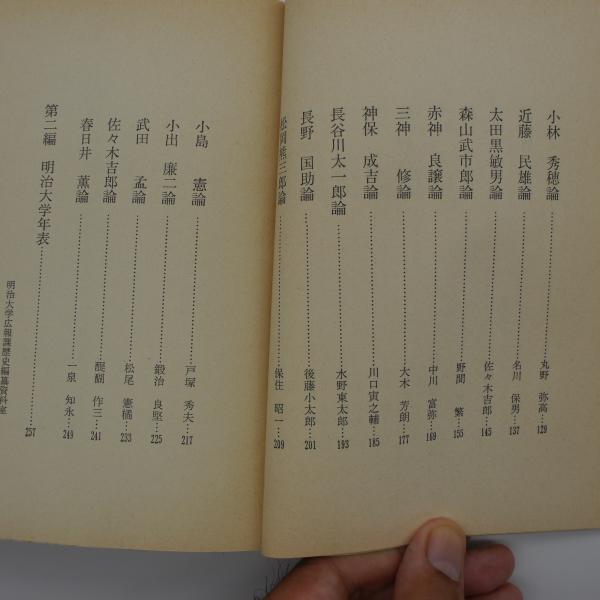 小林 秀穂論……丸野 弥高…129
近藤 民雄論……名川 保男…137
太田黒敏男論……佐々木吉郎…145
森山武市郎論……野間 繁…155
赤神 良譲論……中川 富弥…169
三神 修論……大木 芳朗…177
神保 成吉論……川口寅之輔…185
長谷川太一郎論……水野東太郎…193
長野 国助論……後藤小太郎…201
松岡熊三郎論……保住 昭一…209
小島 憲論……戸塚 秀夫…217
小出 廉二論……鍛治 良堅…225
武田 孟論……松尾 憲橘…233
佐々木吉郎論……醍醐 作三…241
春日井 薫論……一泉 知永…249
第二編 明治大学年表……257
明治大学広報課歴史編纂資料室